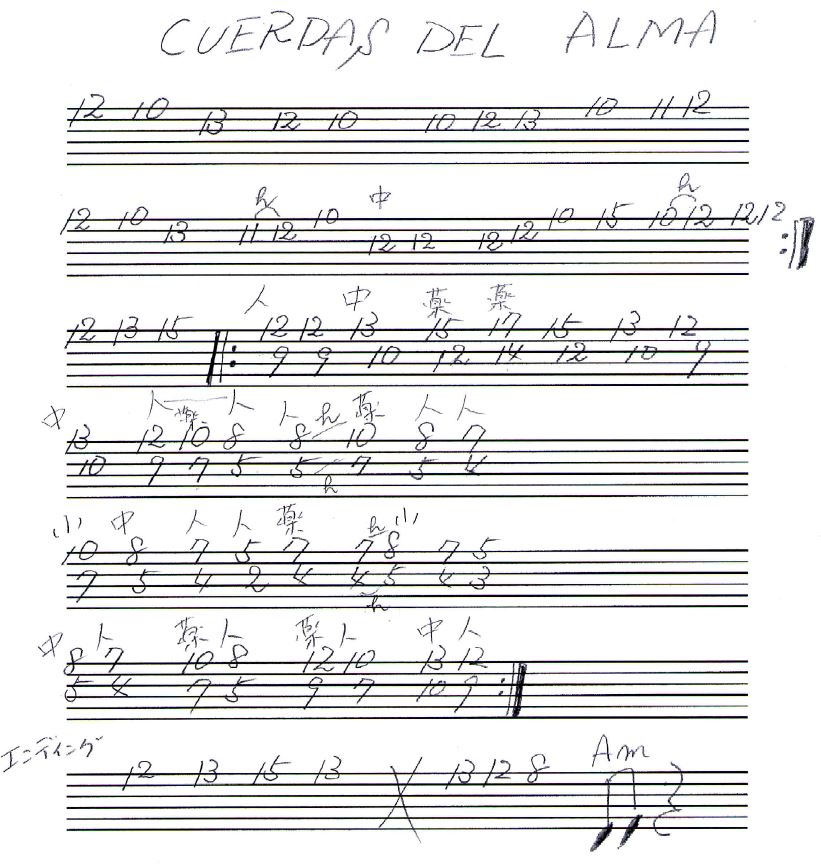 CUERDAS DEL ALMA
12 10 13 12 10 10 12 13 10 11 12
h 中 h
12 10 13 11 12 10 12 12 12 12 10 15 10 12 12 12
人 中 薬 薬
12 13 15 12 12 13 15 17 15 13 12
9 9 10 12 14 12 10 9
中 人 薬 人 人 h 薬 人 人
13 12 10 8 8 10 8 7
10 9 7 5 5 7 5 4
h
小 中 人 人 薬 h 小
10 8 7 5 7 7 8 7 5
7 5 4 2 4 4 5 4 3
h
中 人 薬 人 薬 人 中 人
8 7 10 8 12 10 13 12
5 4 7 5 9 7 10 9
エンディング Am
12 13 15 13 13 12 8